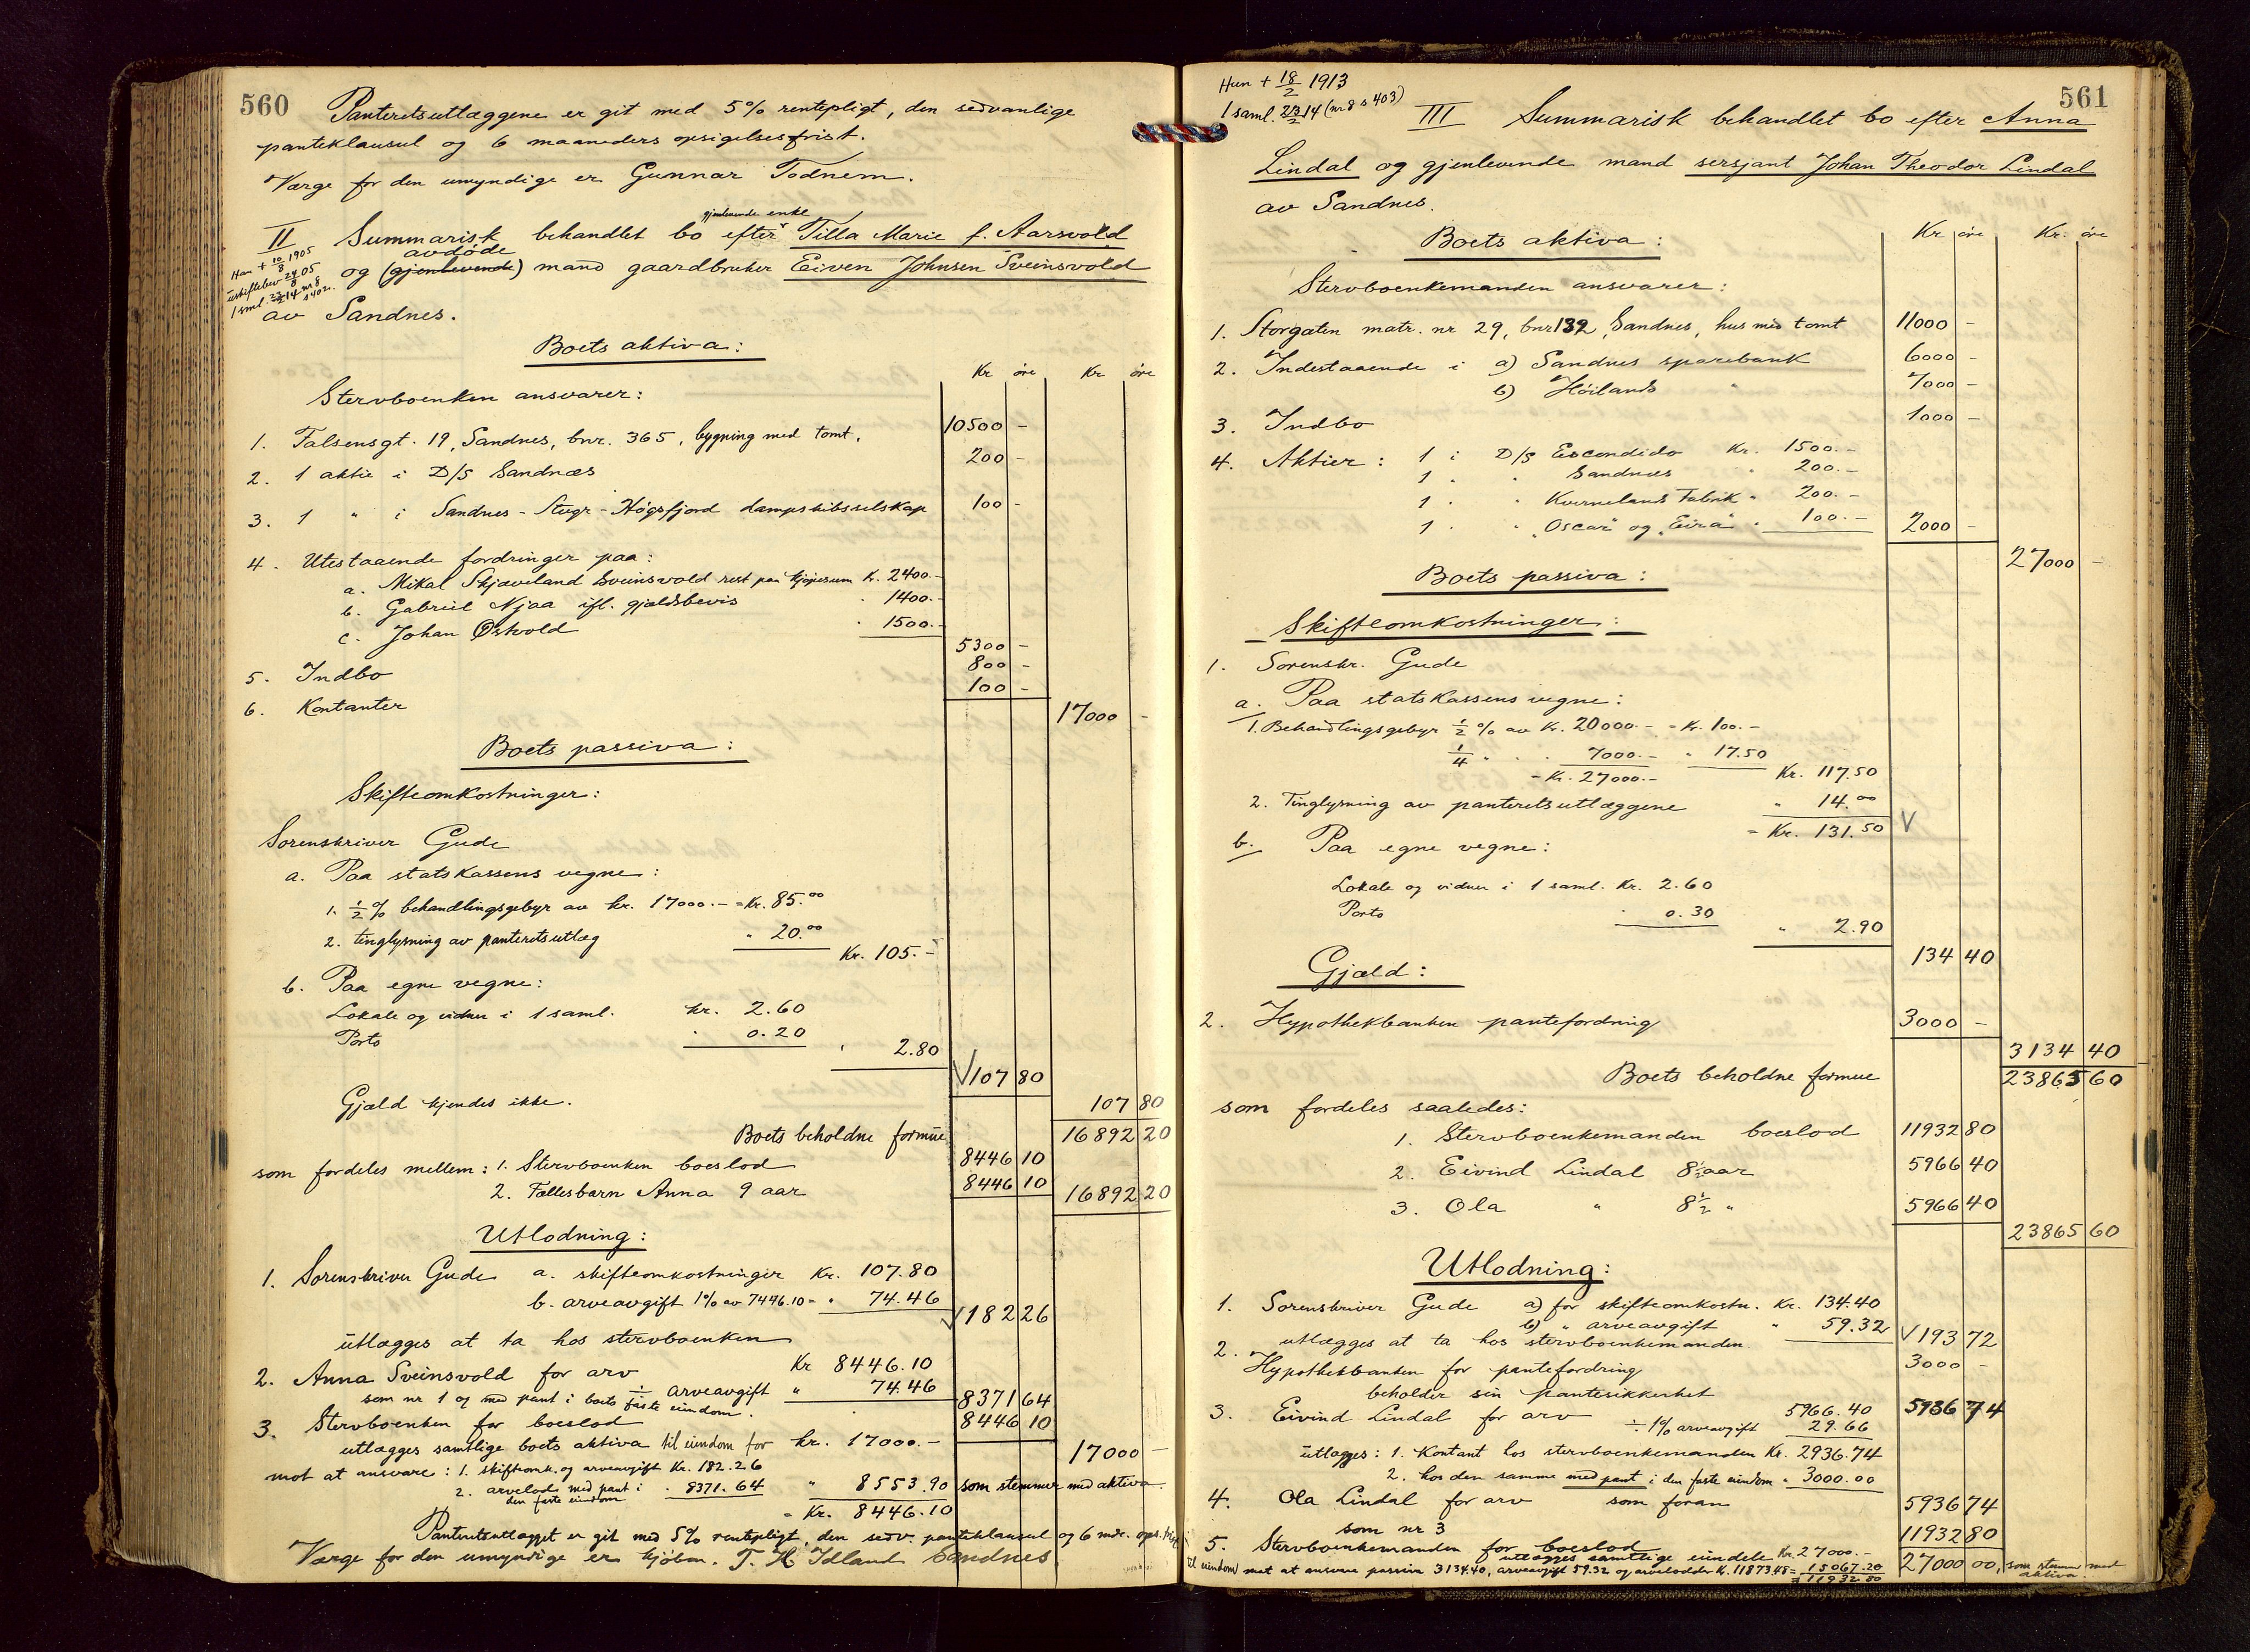 560
Panteretsutlæggene er git med 5% rentepligt, den sedvanlige
panteklausul og 6 maaneders opsigelsesfrist.
Værge for den umyndige er Gunnar Todnem.
gjenlevende enke
II Summarisk behandlet bo efter Tilla Marie f. Aarsvold
avdøde
Han + 10/8 1905
og (gjenlevende) mand gaardbruker Eiven Johnsen Sveinsvold
uskiftebev 24/8 05
1 saml. 23/2 14 nr 8 s 402.
av Sandnes.
Boets aktiva:
Kr øre Kr øre
Stervboenken ansvarer:
1. Falsensgt. 19, Sandnes, bnr. 365, bygning med tomt. 10500 -
2. 1 aktie i D/S Sandnæs 200 -
3. 1 " i Sandnes - Stugr - Høgsfjord dampskibsselskap 100 -
4. Utestaaende fordringer paa:
a. Mikal Skjæveland Sveinsvold rest paa kjøpesum Kr. 2400.-
b. Gabriel Njaa ifl. gjældsbevis " 1400.-
c. Johan Østvold " 1500.-
5300 -
5. Indbo 800 -
6. Kontanter 100 -
17000 -
Boets passiva:
Skifteomkostninger:
Sorenskriver Gude
a. Paa statskassens vegne:
1. 1/2 % behandlingsgebyr av kr. 17000.- = Kr. 85.00
2. tinglysning av panteretsutlæg " 20.00
Kr. 105.-
b. Paa egne vegne:
Lokale og vidner i 1 saml. kr. 2.60
Porto " 0.20
" 2.80
V 107 80
Gjæld kjendes ikke. 107 80
Boets beholdne formue 16892 20
som fordeles mellem: 1. Stervboenken boeslod 8446 10
2. Fællesbarn Anna 9 aar 8446 10 16892 20
Utlodning:
1. Sorenskriver Gude a. skifteomkostninger Kr. 107.80
b. arveavgift 1% av 7446.10 = " 74.46
V 182 26
utlægges at ta hos stervboenken
2. Anna Sveinsvold for arv Kr 8446.10
÷ arveavgift " 74.46
8371 64
som nr 1 og med pant i boets faste eiendom.
3. Stervboenken for boeslod 8446 10
utlægges samtlige boets aktiva til eiendom for kr. 17000.- 17000 -
mot at ansvare: 1. skifteomk. og arveavgift Kr. 182.26
2. arvelod med pant i den faste eiendom " 8371.64 " 8553.90 som stemmer med aktiva.
= Kr. 8446.10
Panteretsutlægget er git med 5% rentepligt, den sedv. panteklausul og 6 mdr. ops.frist
Værge for den umyndige er kjøbm. T. H. Idland Sandnes.
561
Hun + 18/2 1913
1 saml. 23/2 14 (nr 8 s 403)
III Summarisk behandlet bo efter Anna
Lindal og gjenlevende mand sersjant Johan Theodor Lindal
av Sandnes.
Boets aktiva: Kr øre Kr. øre
Stervboenkemanden ansvarer:
1. Storgaten matr. nr 29, bnr 132, Sandnes, hus med tomt 11000 -
2. Indestaaende i a) Sandnes sparebank 6000 -
b) Høilands " 7000 -
3. Indbo 1000 -
4. Aktier: 1 i D/S Escondido Kr. 1500.-
1 " " Sandnæs " 200.-
1 " " Kvernelands Fabrik " 200.-
1 " " "Oscar" og "Eira" " 100.- 2000 -
27000 -
Boets passiva:
Skifteomkostninger:
1. Sorenskr. Gude
a. Paa statskassens vegne:
1. Behandlingsgebyr 1/2 % av Kr. 20000.- = Kr. 100.-
1/4 " " 7000.- " 17.50
= Kr. 27000.- Kr. 117.50
2. Tinglysning av panteretsutlæggene " 14.00
= Kr. 131.50 V
b. Paa egne vegne:
Lokale og vidner i 1 saml. Kr. 2.60
Porto " 0.30
" 2.90
134 40
Gjæld:
2. Hypothekbanken pantefordring 3000 -
3134 40
Boets beholdne formue 23865 60
som fordeles saaledes:
1. Stervboenkemanden boeslod 11932 80
2. Eivind Lindal 8½ aar 5966 40
3. Ola " 8½ " 5966 40
23865 60
Utlodning:
1. Sorenskriver Gude a) for skifteomkostn. Kr. 134.40
b) " arveavgift " 59.32 V 193 72
utlægges at ta hos stervboenkemanden.
2. Hypothekbanken for pantefordring 3000 -
beholder sin pantesikkerhet
3. Eivind Lindal for arv 5966.40
÷ 1% arveavgift 29.66 5936 74
utlægges: 1. Kontant hos stervboenkemanden Kr. 2936.74
2. hos den samme med pant i den faste eiendom " 3000.00
4. Ola Lindal for arv som foran 5936 74
som nr 3
5. Stervboenkemanden for boeslod 11932 80
utlægges samtlige eiendele Kr. 27000.-
til eiendom mot at ansvare passiva 3134.40, arveavgift 59.32 og arvelodder Kr. 11873.48 = 15067.20
= 11932.80
27000 00, som stemmer med aktiva.